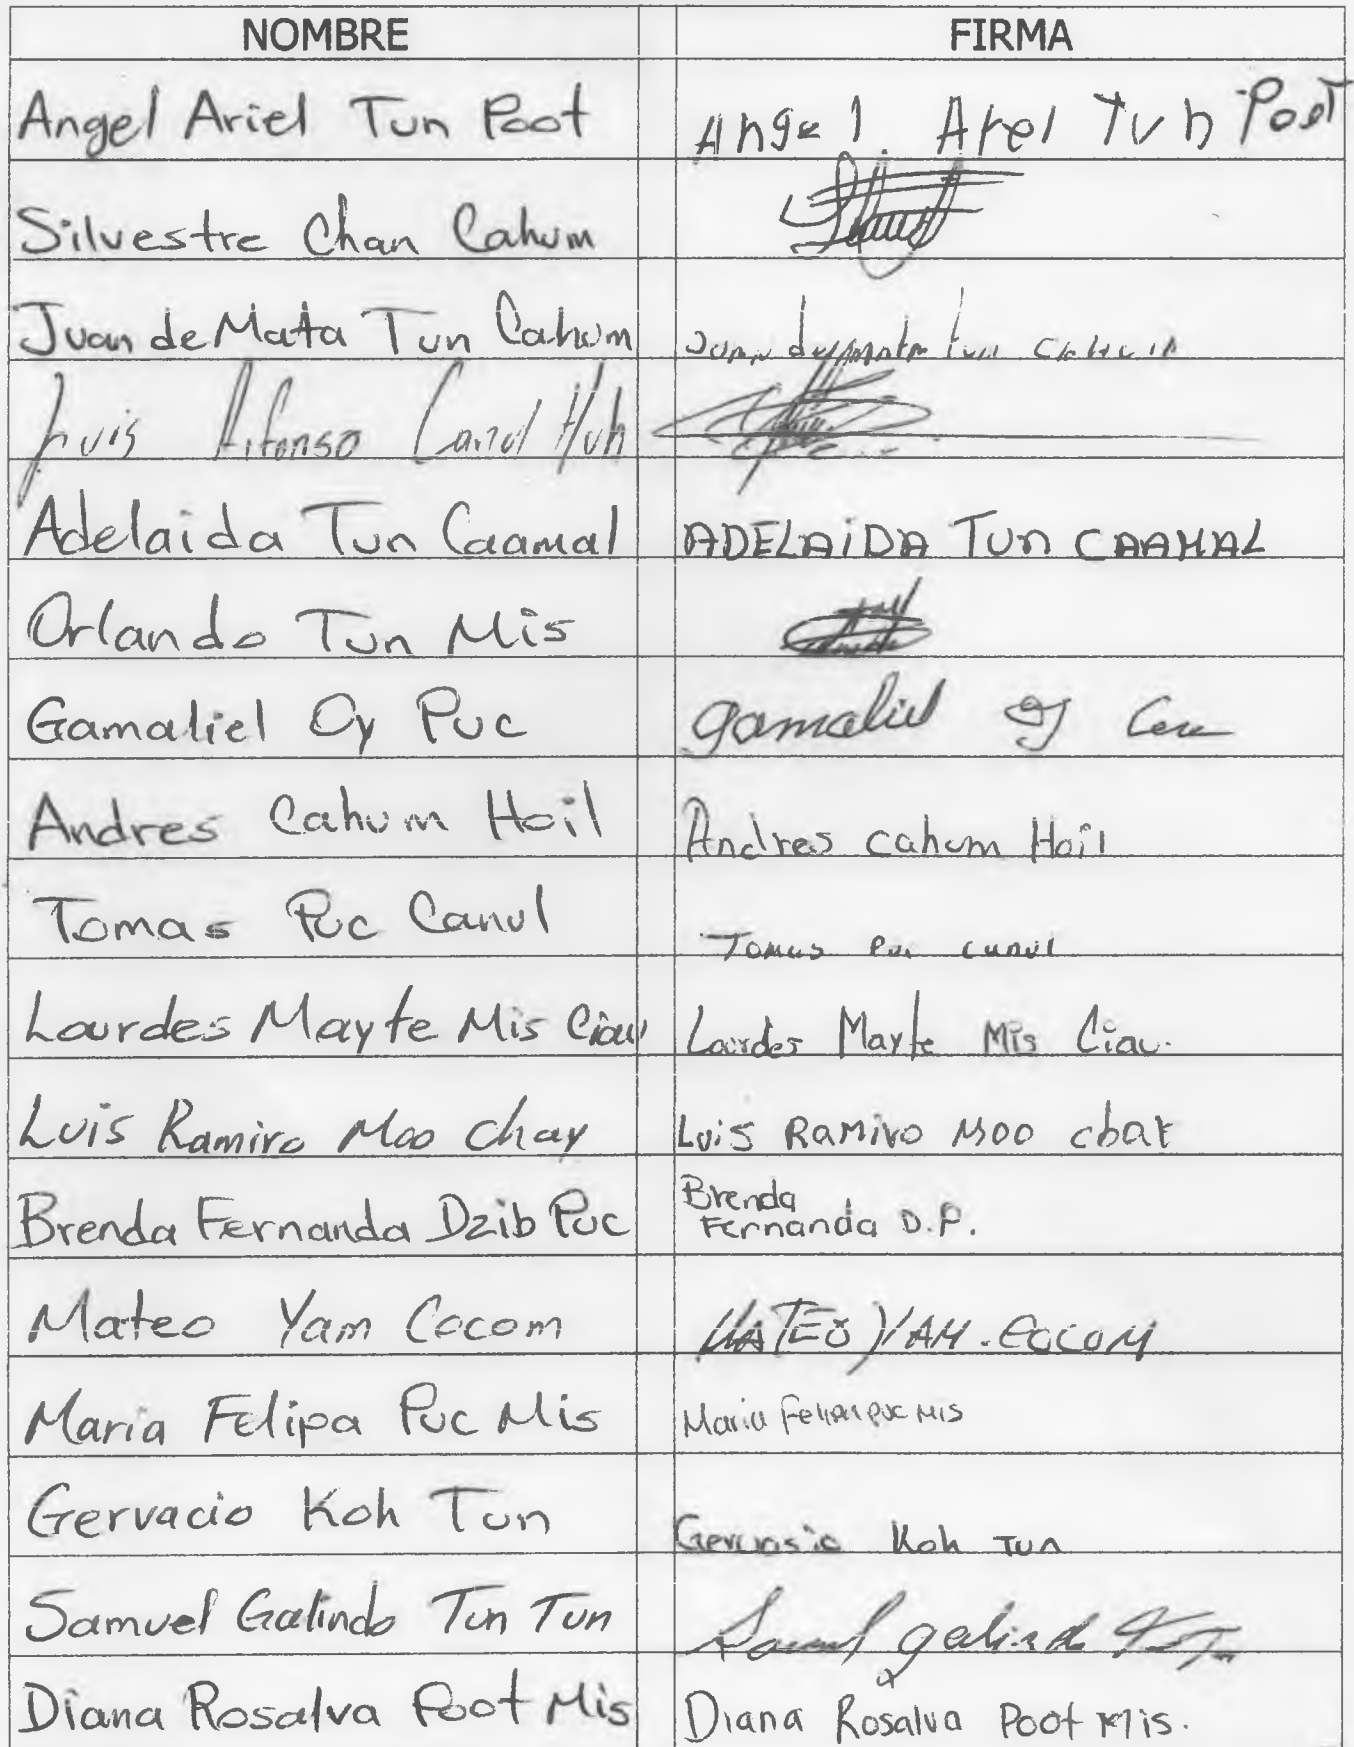 NOMBRE FIRMA
Angel Ariel Tun Poot Angel Arel Tun Poot
Silvestre Chan Cahum
Juan de Mata Tun Cahum Juan tun
Luis Alfonso Canul Huh
Adelaida Tun Caamal ADELAiDA TUn CAAMAL
Orlando Tun Mis
Gamaliel Oy Puc gamaliel oy
Andres Cahum Hoil Andres cahum Hoil
Tomas Puc Canul Tomas Puc canul
Lourdes Mayte Mis Ciau Lourdes Mayte Mis Ciau.
Luis Ramiro Moo Chay Luis RaMiro MOO
Brenda Fernanda Dzib Puc Brenda
Fernanda D.P.
Mateo Yam Cocom MATEO YAM. COCOM
Maria Felipa Puc Mis Maria PUC MIS
Gervacio Koh Tun Gervasio Koh Tun
Samuel Galindo Tun Tun Samuel galindo
Diana Rosalva Poot Mis Diana Rosalva Poot Mis.